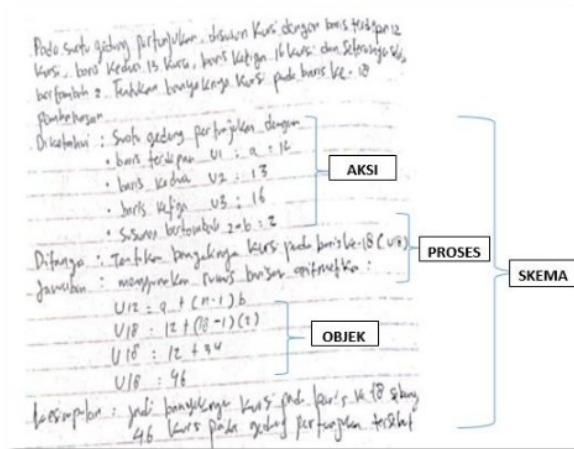 Pada suatu gedung pertunjukan, disusun kursi dengan baris terdepan 12
kursi, baris kedua 13 kursi, baris ketiga 16 kursi dan seterusnya
bertambah 2. Tentukan banyaknya kursi pada baris ke-18
pembahasan
Diketahui : Suatu gedung pertunjukan dengan
• baris terdepan U1 = a = 12
• baris kedua U2 = 13
• baris ketiga U3 = 16
• susunan bertambah 2 = b = 2
AKSI
Ditanya : Tentukan banyaknya kursi pada baris ke-18 (U18)
Jawaban : menggunakan rumus barisan aritmatika :
PROSES
SKEMA
U12 = a + (n-1) b
U18 = 12 + (18-1) (2)
U18 = 12 + 34
U18 = 46
OBJEK
Kesimpulan : jadi banyaknya kursi pada baris ke 18
46 kursi pada gedung pertunjukan tersebut